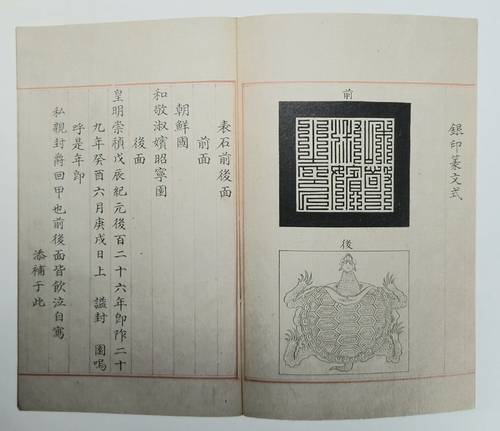 銀印篆文式
前
後
表石前後面
前面
朝鮮國
和敬淑嬪昭寧園
後面
皇明崇禎戊辰紀元後百二十六年卽阼二十
九年癸酉六月庚戌日上 謚封 園嗚
呼是年卽
私親封爵回甲也前後面皆飮泣自寫
添補于此